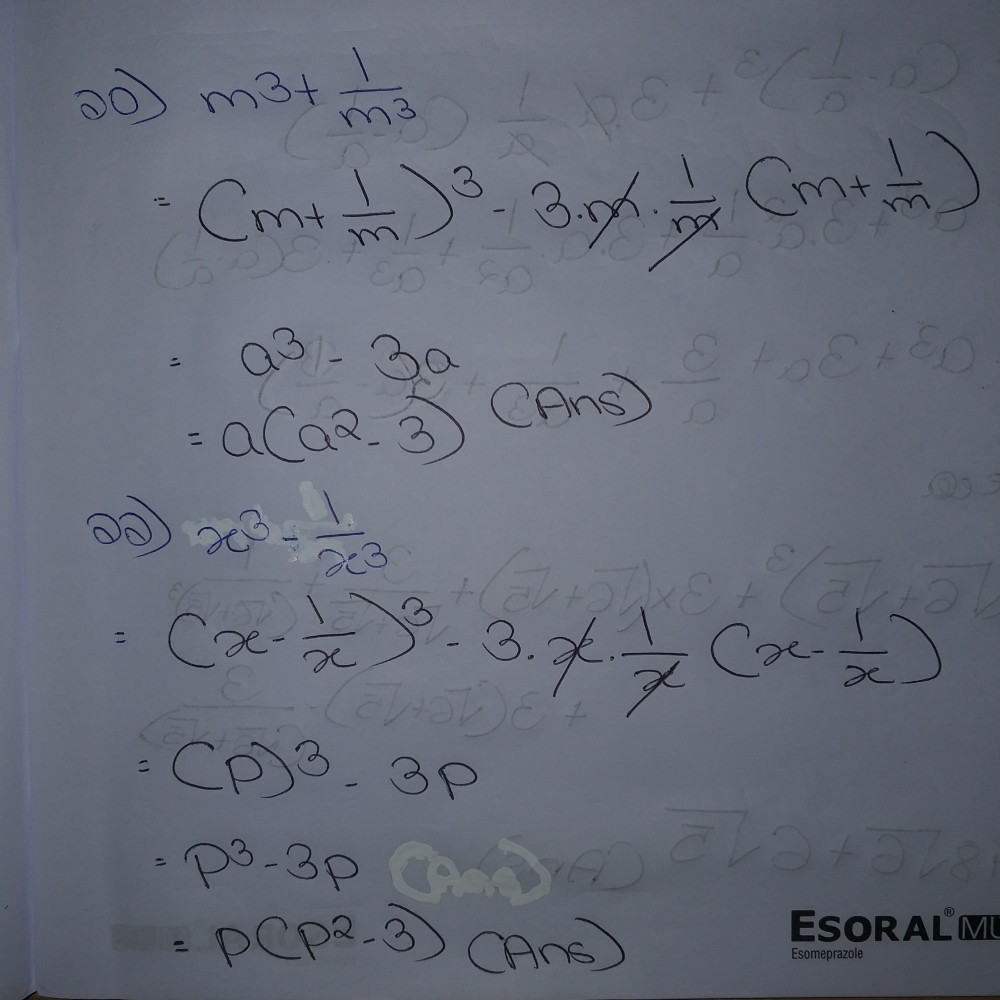 ১০) m3 + 1/m3
= (m + 1/m)3 - 3.m.1/m (m + 1/m)
= a3 - 3a
= a(a2 - 3) (Ans)
১১) x3 - 1/x3
= (x - 1/x)3 - 3.x.1/x (x - 1/x)
= (p)3 - 3p
= p3 - 3p
= p(p2 - 3) (Ans)
ESORAL® MU
Esomeprazole